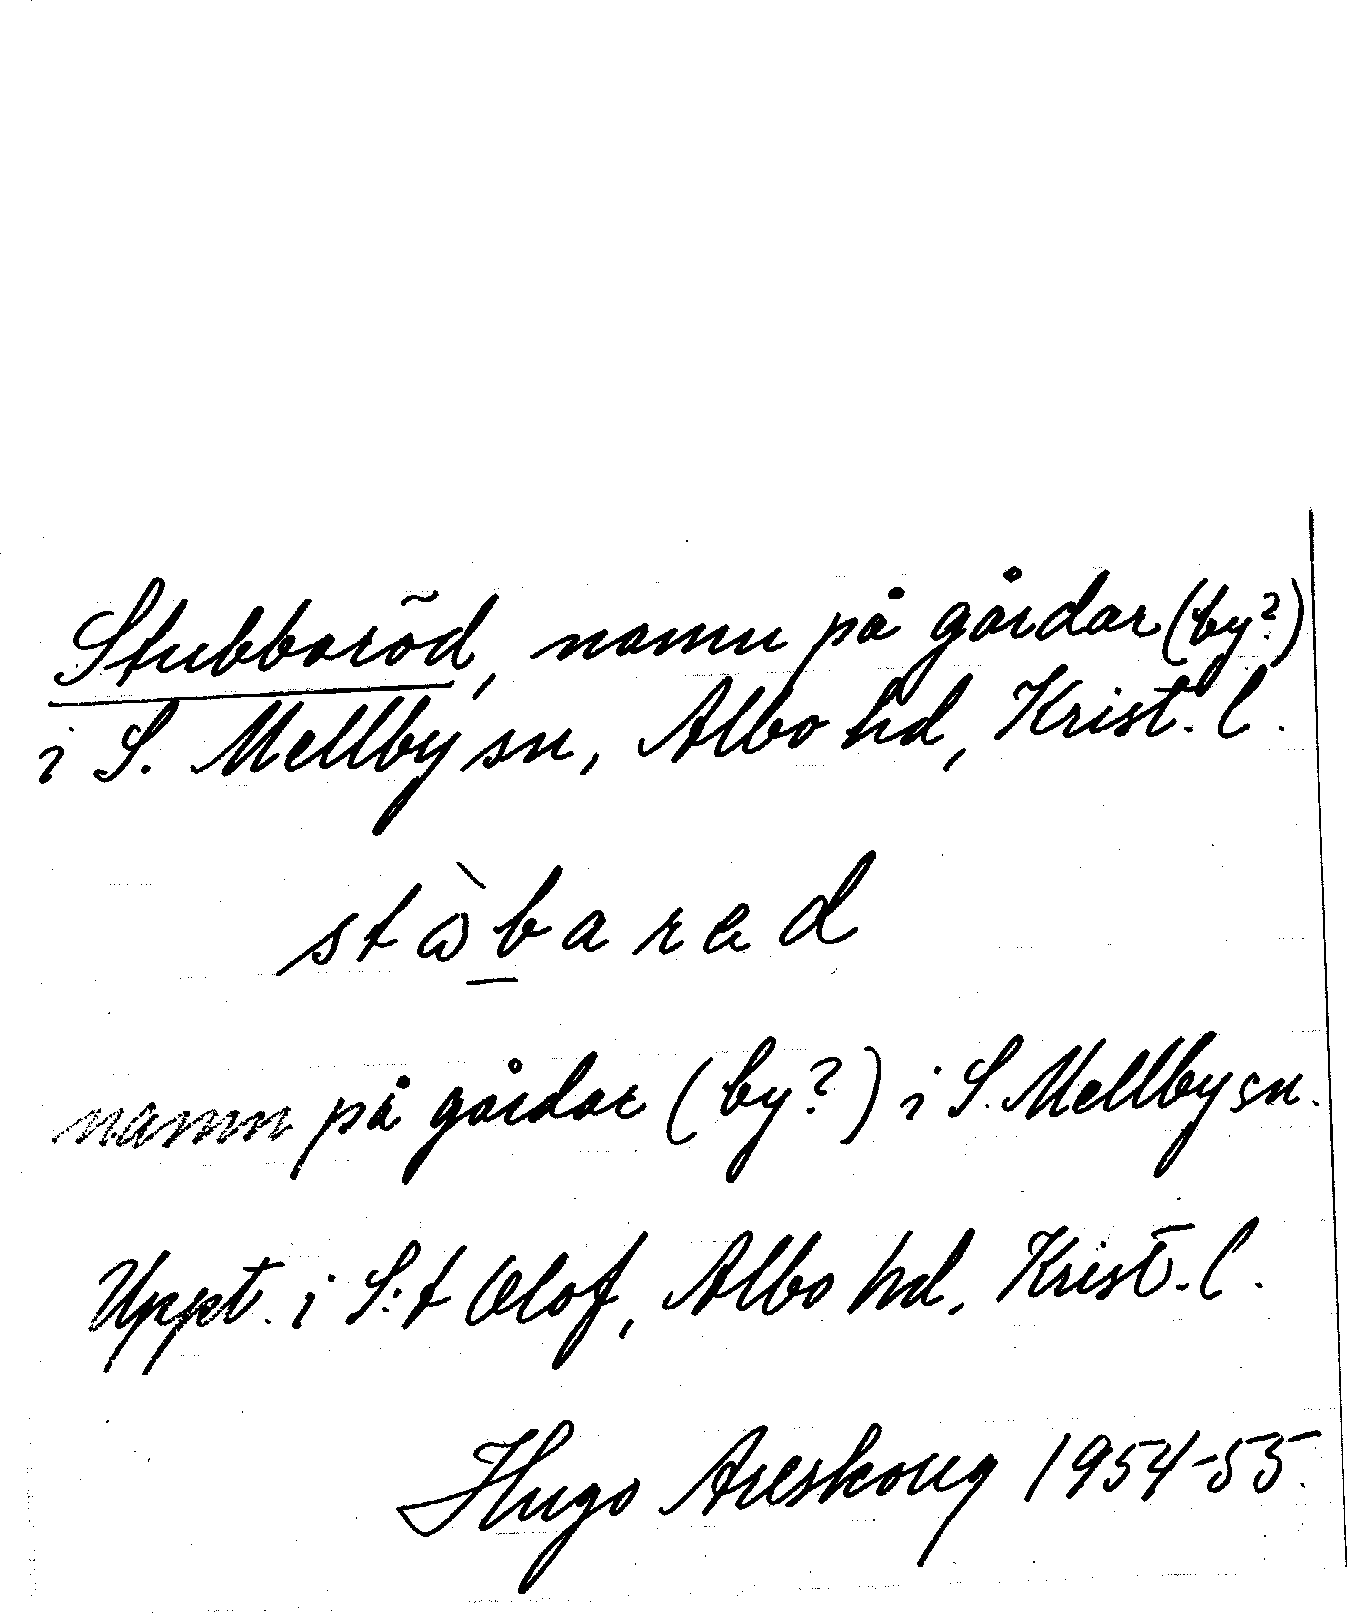 Stubbaröd, namn på gårdar (by?)
i S. Mellby sn, Albo hd, Krist. l.
namn på gårdar (by?) i S. Mellby sn.
Uppt. i S:t Olof, Albo hd, Krist. l.
Hugo Areskoug 1954-55.